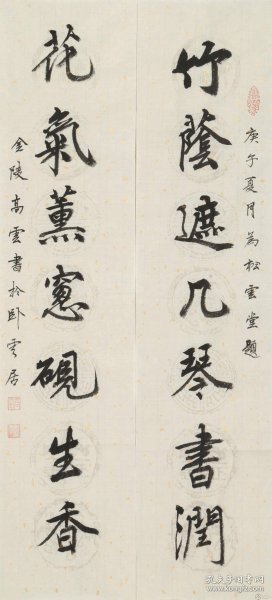 庚午夏月为松雲堂題
竹蔭遮几琴書潤
花氣薰窻硯生香
金陵高雲書於卧雲居
孔夫子旧书网